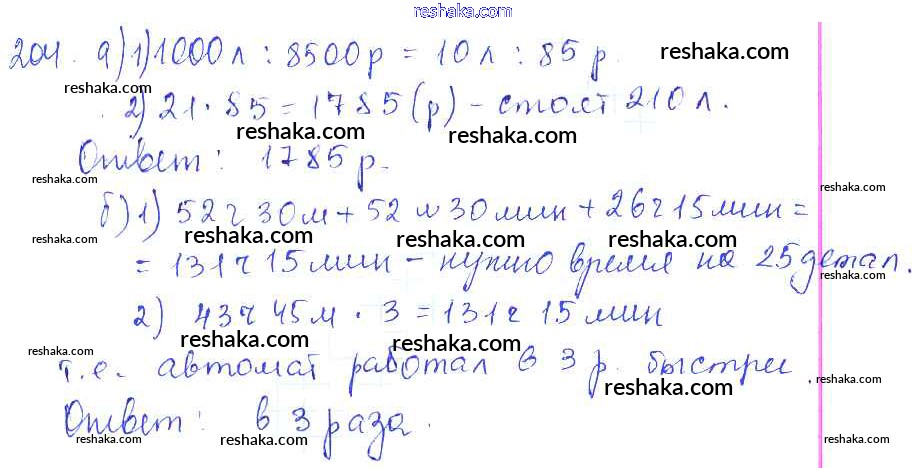 reshaka.com
204. а) 1) 1000 л : 8500 р = 10 л : 85 р. reshaka.com
reshaka.com
2) 21 · 85 = 1785 (р) – стоят 210 л.
reshaka.com reshaka.com
Ответ: 1785 р.
reshaka.com reshaka.com reshaka.com reshaka.com
б) 1) 52 ч 30 м + 52 ч 30 мин + 26 ч 15 мин =
reshaka.com reshaka.com reshaka.com reshaka.com
= 131 ч 15 мин – нужно время на 25 детал.
reshaka.com
2) 43 ч 45 м · 3 = 131 ч 15 мин
reshaka.com reshaka.com reshaka.com
reshaka.com
т.е. автомат работал в 3 р. быстрее.
reshaka.com reshaka.com
Ответ: в 3 раза.
reshaka.com reshaka.com reshaka.com reshaka.com